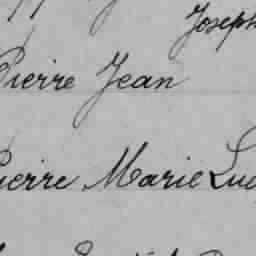 Joseph
Pierre Jean
Pierre Marie Luc